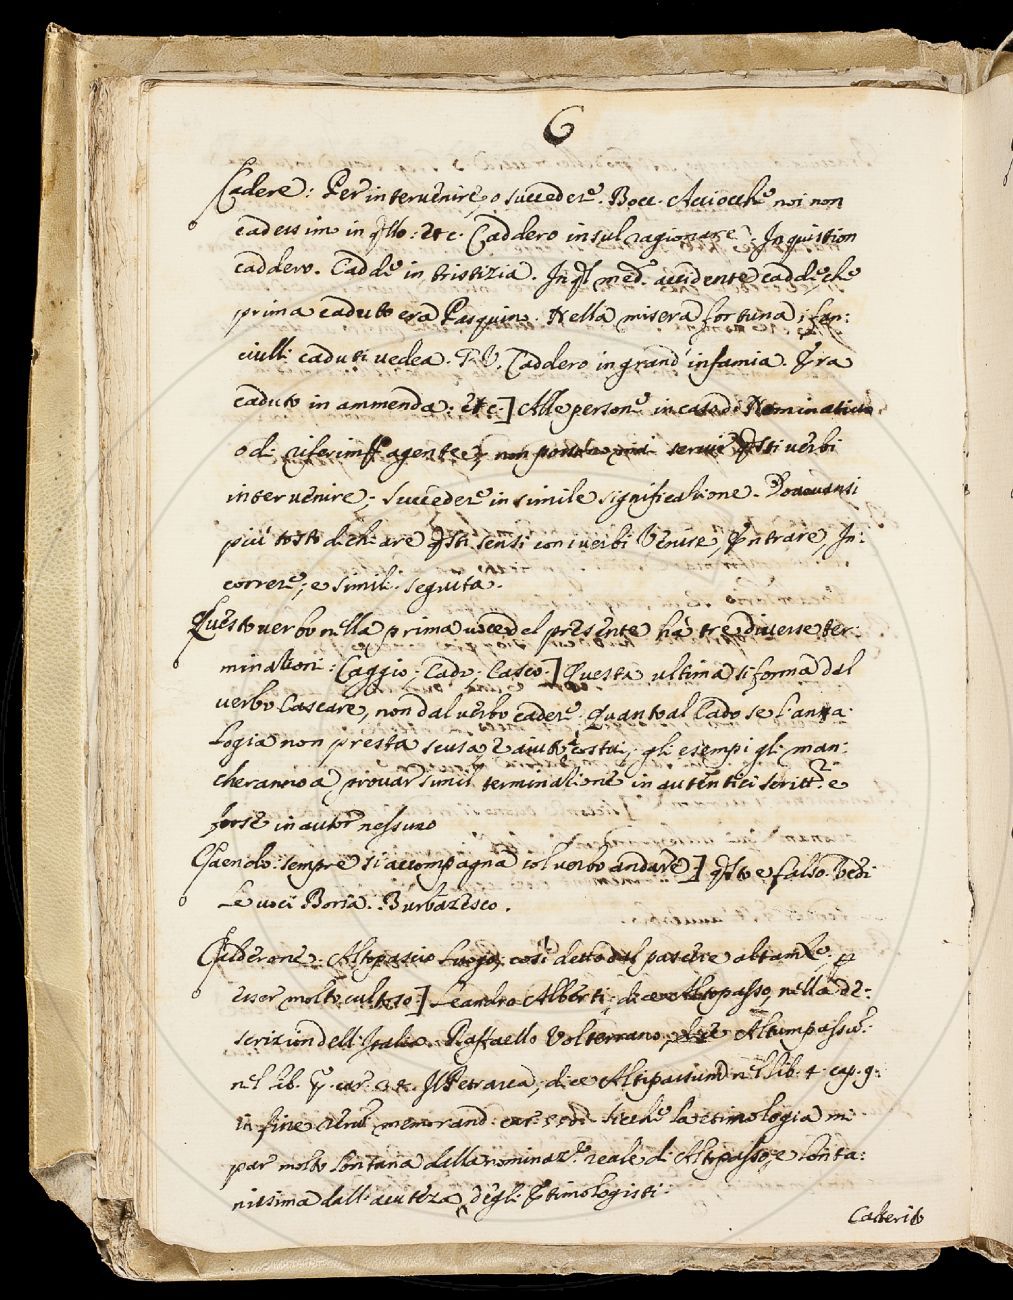 C
Cadere: Per intervenire, o succedere. Bocc. Acciocchè noi non
cadessimo in qsto: etc. Caddero in sul ragionare. In quistion
caddero. Cadde in tristizia. In ql med. accidente cadde che
prima caduto era Pasquino. Nella misera fortuna i fan:
ciulli caduti vedea. Caddero in grand' infamia. Era
caduto in ammenda: etc.] Alle persone in caso di Nominativo
o di agente, non servir qsti verbi
intervenire, succedere in simile significatione. Doveuansi
più tosto dichiare qsti sensi con i verbi Venire, Entrare, In:
correre, e simili. seguita.
Questo verbo nella prima voce del presente hà tre diverse ter:
minationi: Caggio, Cado, Casco.] Questa ultima si forma dal
verbo Cascare, non dal verbo cadere. Quanto al Cado se l'ana:
logia non presta scusa, e aiuto à costui, gli esempi gli man:
cheranno a provar simil terminatione in autentici scritt.re e
forse in autor nessuno
Caendo: sempre si accompagna col verbo andare] qsto e falso. Vedi
Le voci Boria. Burbanzesco.
Calderone. Altopascio luogo, così detto dal pascere altamte. p
esser molto cultoso.] Leandro Alberti, dice Altopasso, nella de:
scrizion dell'Italia. Raffaello Volterrano, Altumpassu.:
nel lib. car. Il Petrarca, dice Altipassum nel lib. 4. cap. 9.
in fine memorand. car. sicche la etimologia mi
par molto lontana dalla nominaz.e reale di Altopasso, e lonta:
nissima dall'acutezza degli Etimologisti.
Calterito